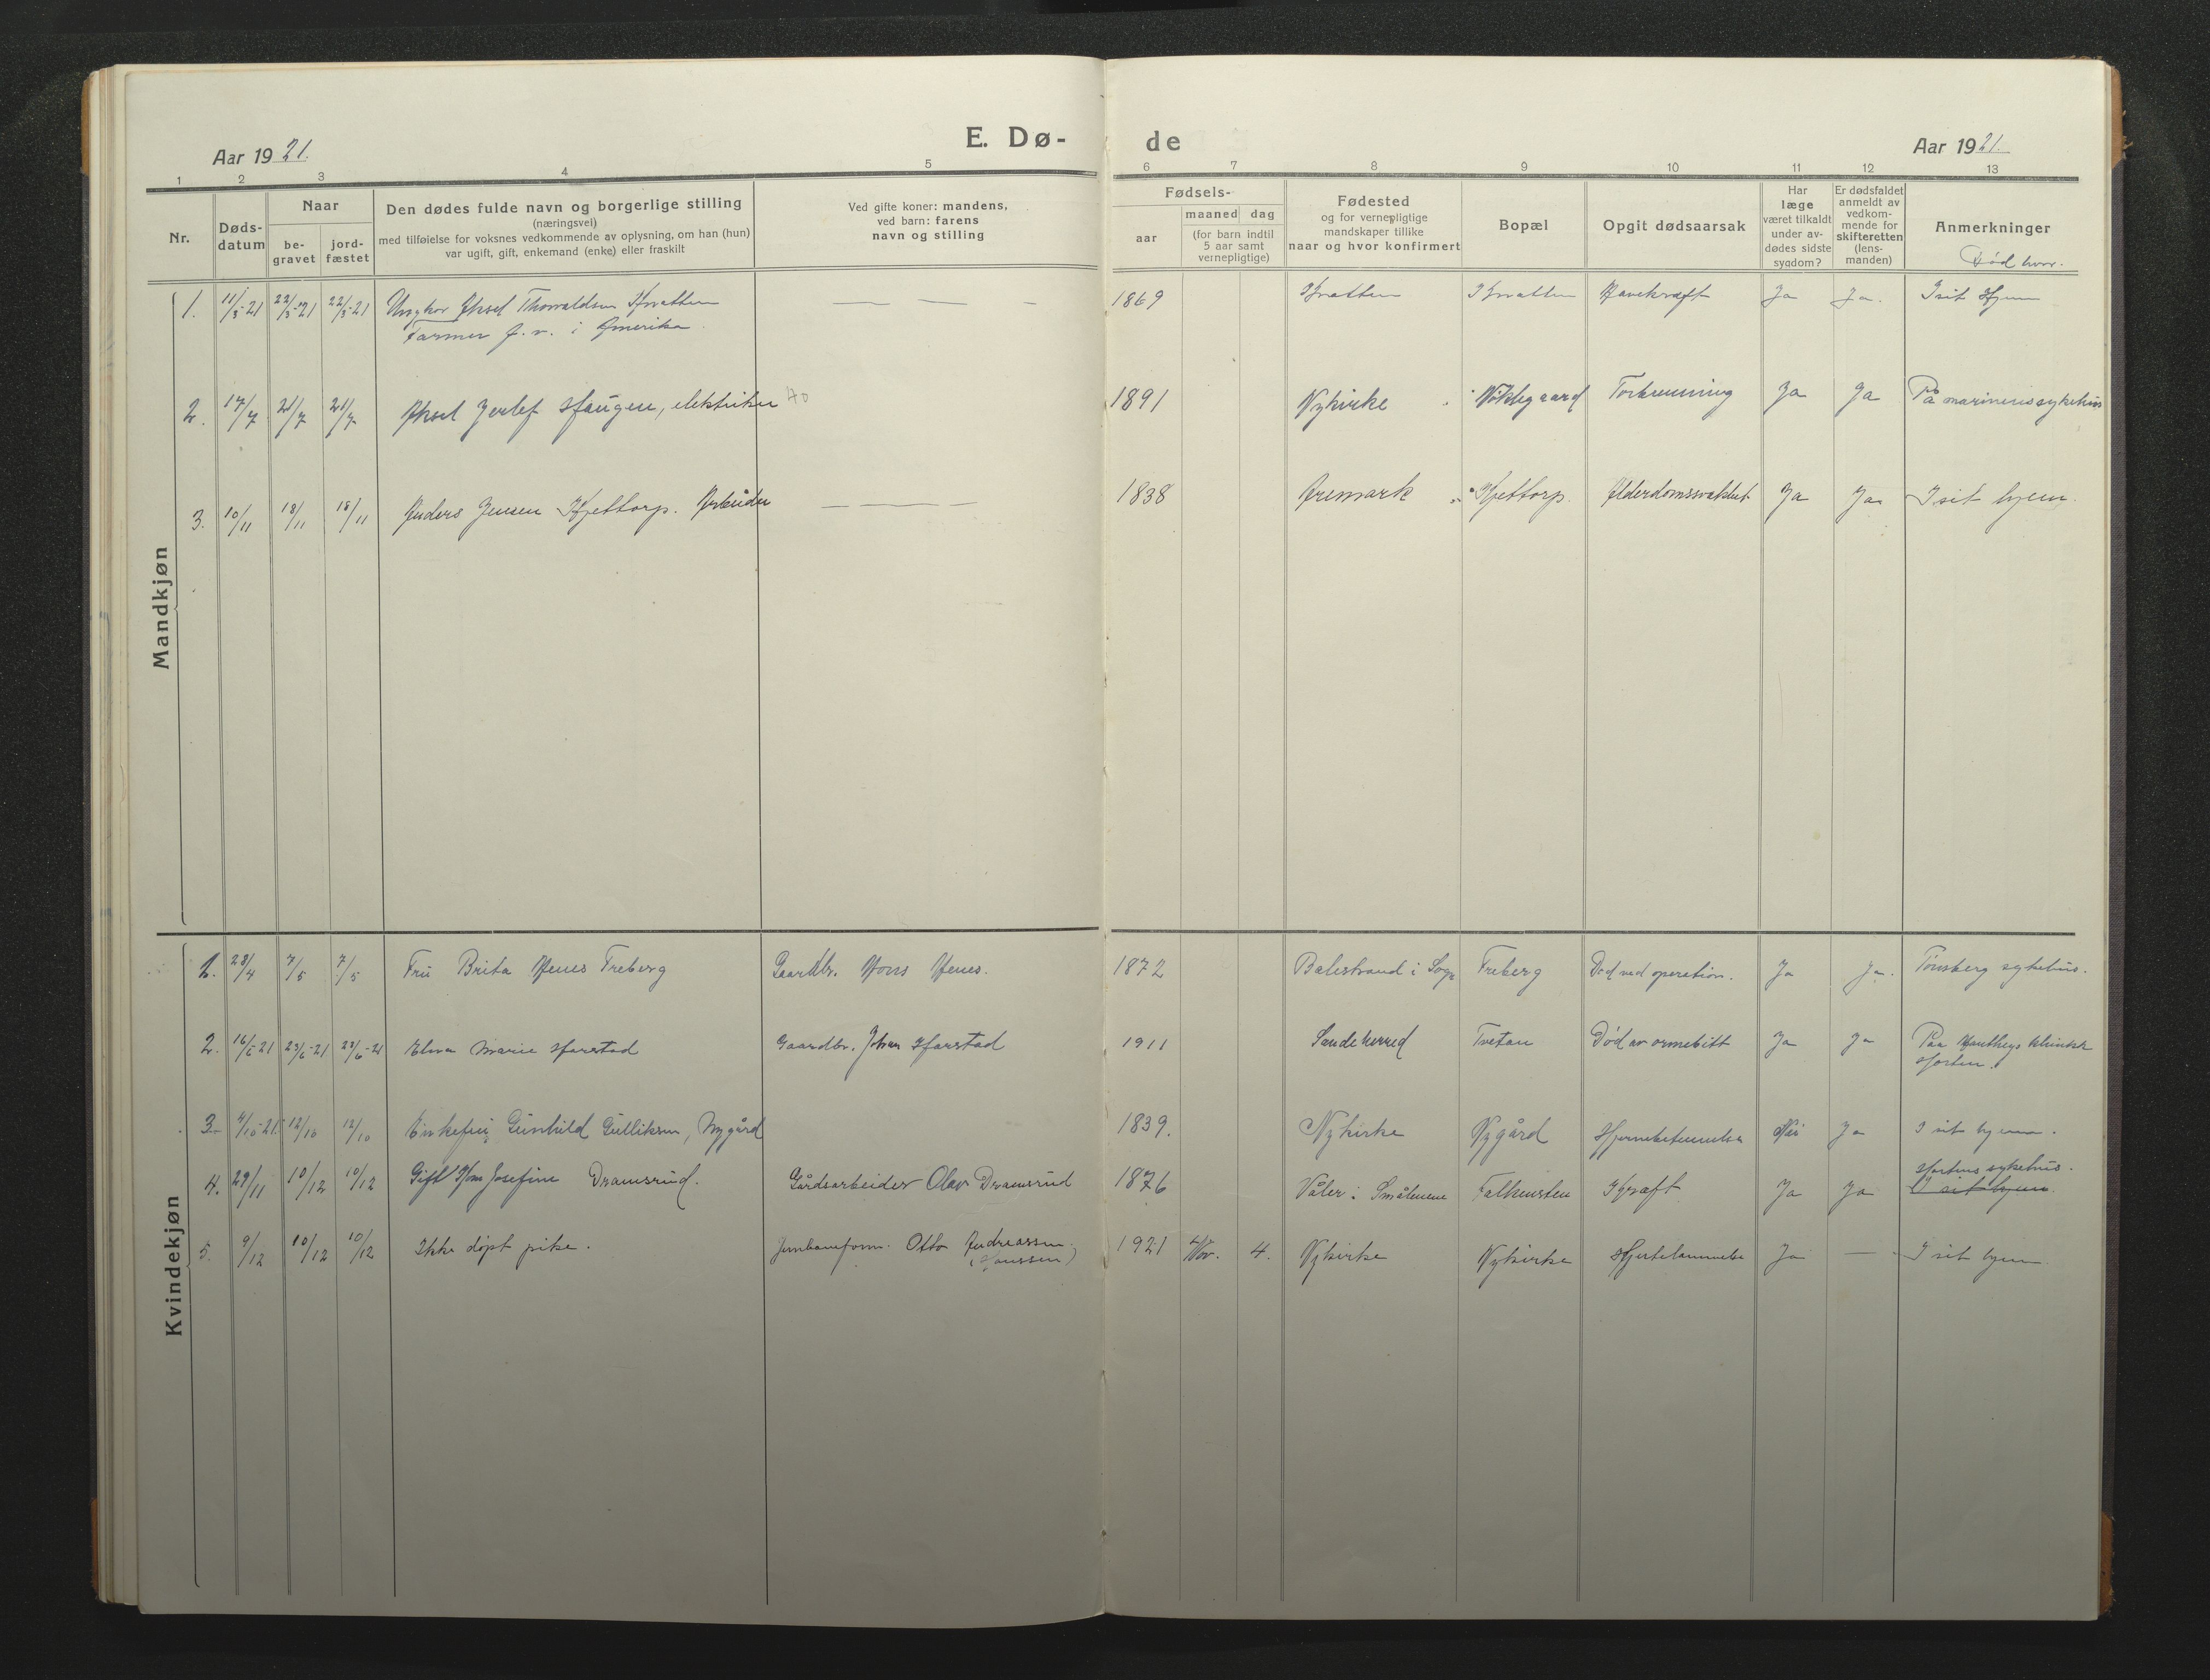 E. Dø-
de
Aar 1921.
Aar 1921.
1 2 3 4 5 6 7 8 9 10 11 12 13
Nr.
Døds-
datum
Naar
be-
gravet
jord-
fæstet
Den dødes fulde navn og borgerlige stilling
(næringsvei)
med tilføielse for voksnes vedkommende av oplysning, om han (hun)
var ugift, gift, enkemand (enke) eller fraskilt
Ved gifte koner: mandens,
ved barn: farens
navn og stilling
Fødsels-
aar
maaned dag
(for barn indtil
5 aar samt
vernepligtige)
Fødested
og for vernepligtige
mandskaper tillike
naar og hvor konfirmert
Bopæl
Opgit dødsaarsak
Har
læge
været tilkaldt
under av-
dødes sidste
sygdom?
Er dødsfaldet
anmeldt av
vedkom-
mende for
skifteretten
(lens-
manden)
Anmerkninger
Død hvor.
Mandkjøn
1. 11/3-21 22/3-21 22/3-21 Ungkar Aksel Thorvaldsen Knatten — — — 1869 Knatten Knatten Ja Ja. I sit Hjem
Farmer f. v. i Amerika.
2. 17/7 21/7 21/7 Aksel Haugen, elektriker 1891 Nykirke Viklegaard Forbrenning Ja Ja På marinens sykehus
3. 10/11 18/11 18/11 Anders Jensen Kjettorp. Arbeider — — — 1838 Aremark Kjettorp. Alderdomssvakhet Ja Ja I sit hjem.
Kvindekjøn
1. 28/4 7/5 7/5 Fru Brita Henes Freberg Gaardbr. Hons Henes. 1872 Balestrand i Sogn Freberg Død ved operation. Ja Ja. Tønsberg sykehus.
2. 16/6-21 23/6-21 23/6-21 Elna Marie Harstad Gaardbr. Johan Harstad 1911 Sandeherred Tvetan Død av ormebitt Ja Ja Paa klinikk
Horten.
3. 4/10-21 12/10 12/10 Enkefru Gunhild Gulliksen, Nygård 1839. Nykirke Nygård Hjernebetennelse Nei Ja I sit hjem.
4. 29/11 10/12 10/12 Gift Josefine Dramsrud. Gårdsarbeider Olav Dramsrud 1876 Våler i Smålenene Falkensten Kræft Ja Ja Hortens sykehus.
I sit hjem.
5. 9/12 10/12 10/12 Ikke døpt pike. Jernbaneform. Otto Andreassen.
(Hanssen)
1921 Nov. 4. Nykirke Nykirke Hjertelammelse Ja — I sit hjem